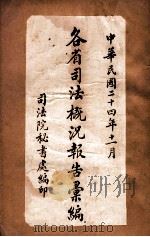 中華民國二十四年十一月
各省司法概況報告彙編
司法院秘書處編印